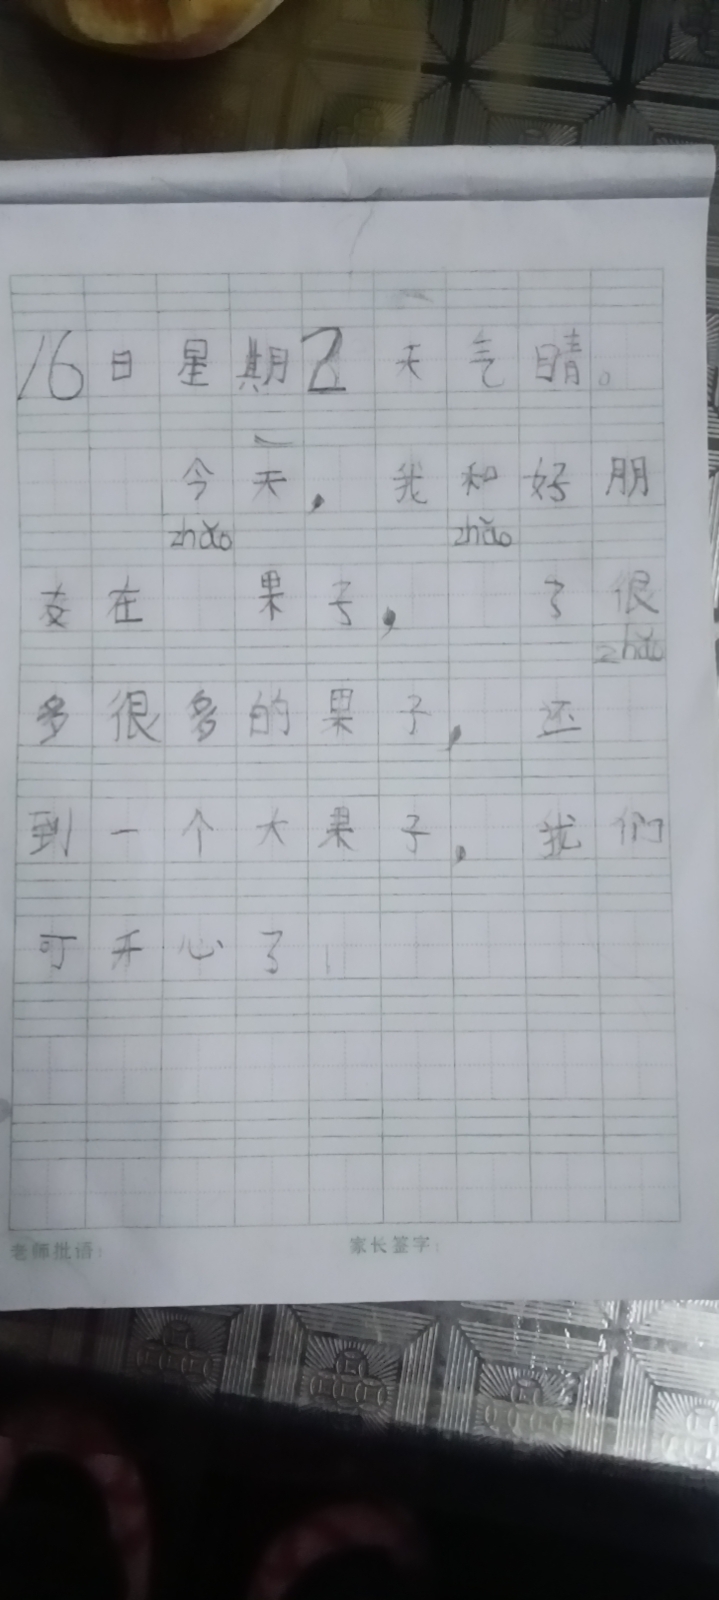 16日星期2天气晴。
今天，我和好朋
zhǎo zhǎo
友在 果子， 了很
zhǎo
多很多的果子，还
到一个大果子，我们
可开心了！
老师批语： 家长签字：